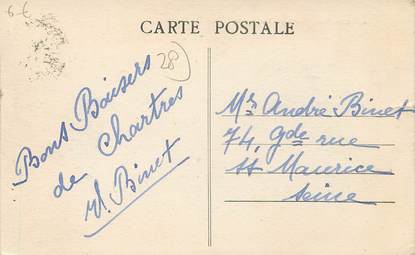 6-€
CARTE POSTALE
28
Bons Baisers
de Chartres
Binet
Mr André Binet
74, gde rue
St Maurice
Seine